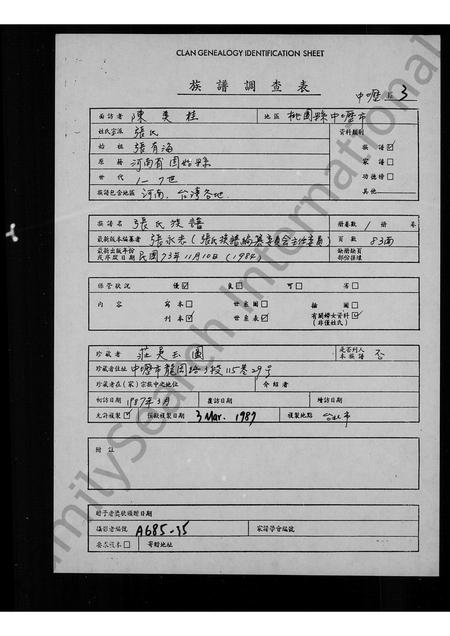 CLAN GENEALOGY IDENTIFICATION SHEET
族譜調查表
中壢 3
面訪者 陳美桂 地區 桃園縣中壢市
姓氏宗派 張氏 資料類別
始祖 張有海 族譜☑
原籍 河南省固始縣 家譜☐
世代 1-7世 功德榜☐
族譜包含地區 河南、台灣各地 其他
族譜名 張氏族譜 冊卷數 1 冊 卷
最新版本編纂者 張永光(張氏族譜編纂委員會主任委員) 頁數 83面
最新出版年份或序跋日期 民國73年11月10日(1984) 缺冊缺頁部份描述
保管狀況 優☑ 良☐ 可☐ 劣☐
內容 寫本☐ 世系圖☐ 插圖☐
刊本☑ 世系表☑ 有關婦女資料☑(非僅姓氏)
珍藏者 莊吳玉圓 是否列入本族譜 否
珍藏者住址 中壢市龍岡路3段115巷29号
珍藏者在(家)宗族中之地位 介紹者
初訪日期 1987年3月 覆訪日期 續訪日期
允許複製☑ 預軟複製日期 3 Mar. 1987 複製地點 台北市
附註
贈予者獎狀預贈日期
攝影者編號 A685-15 家譜學會編號
要求複本☐ 寄贈地址
FamilySearch International